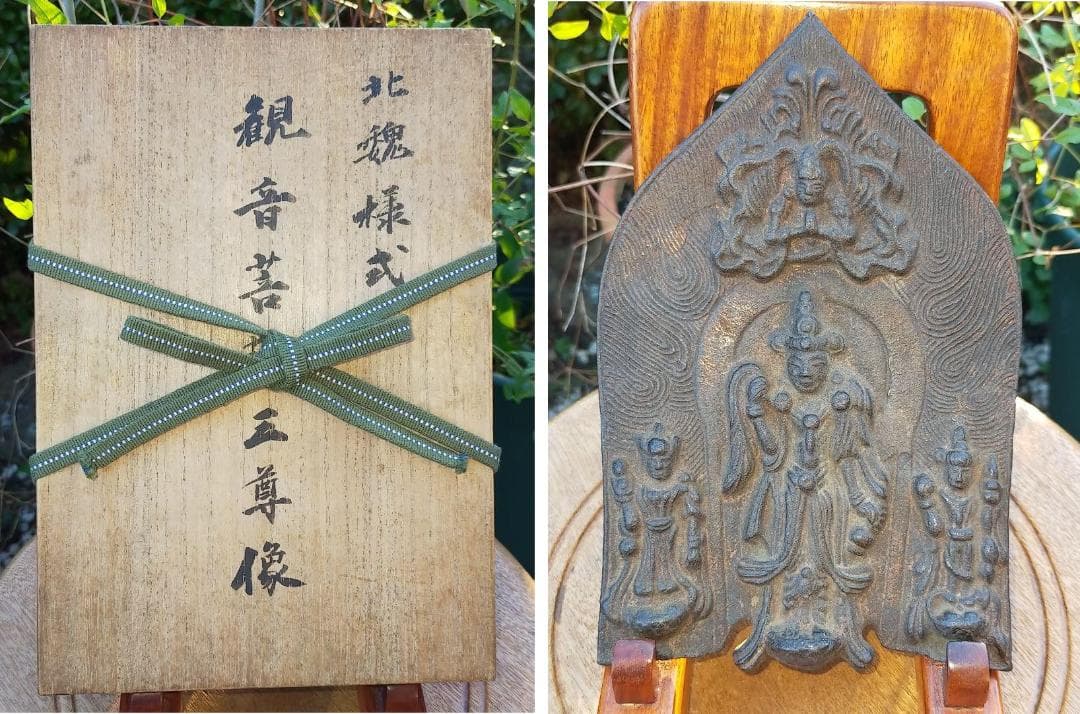 北魏様式
観音菩三尊像